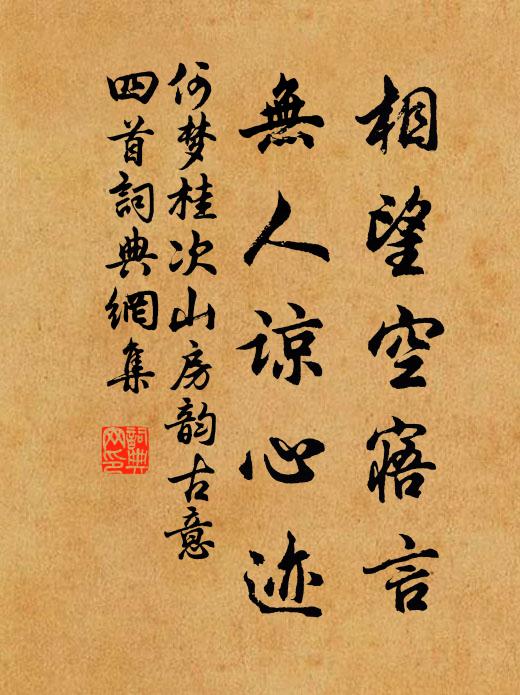 相望空寤言
無人谅心迹
何梦桂次山房韵古意
四首詞典網集
詞典網印